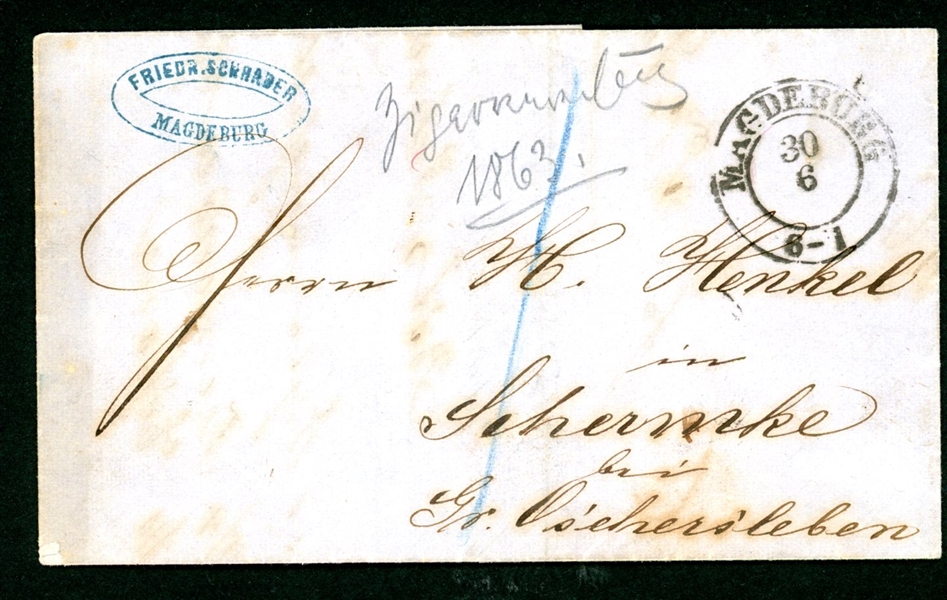 FRIEDR. SCHRADER
MAGDEBURG
1863.
MAGDEBURG
30
6
6-1
Herrn H. Henkel
in
Schermke
bei
Gr. Oschersleben